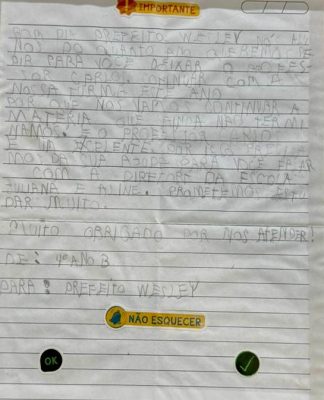 IMPORTANTE
BOM DIA PREFEITO WESLEY NÓS ALU
NOS DO QUARTO ANO QUEREMOS PE
DIR PARA VOCÊ DEIXAR O PROFES
SOR CARLOS CONTINUAR COM A
NOSSA TURMA ESTE ANO
POR QUE NÓS VAMOS CONTINUAR A
MATERIA QUE AINDA NÃO TERMI
NAMOS. E O PROFESSOR
É UM EXCELENTE POR ISSO PRECISA
MOS DA SUA AJUDA PARA VOCÊ FALAR
COM A DIRETORA DA ESCOLA
JULIANA E ALINE. PROMETEMOS ESTU
DAR MUITO.
MUITO OBRIGADO POR NOS ATENDER!
DE: 4º ANO B
PARA: PREFEITO WESLEY
NÃO ESQUECER
OK